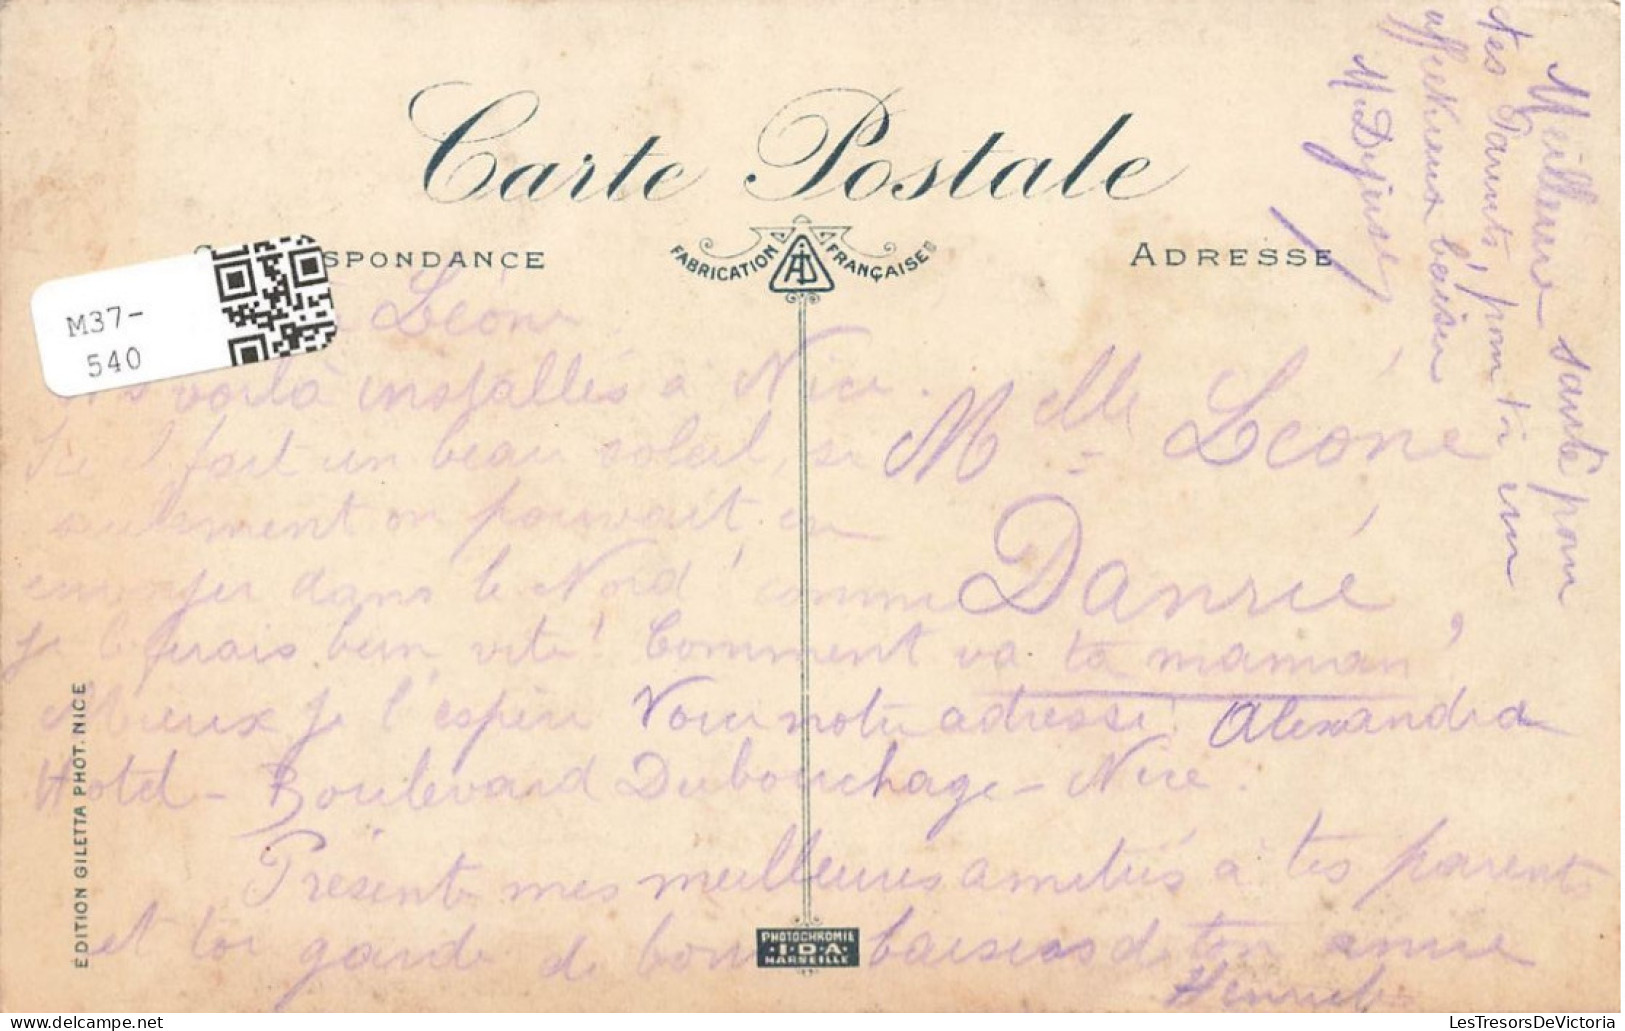 Carte Postale
FABRICATION FRANÇAISE
SPONDANCE
ADRESSE
M37-
540
Léone
voilà installés a Nice.
il fait un beau soleil, si
seulement on pouvait en
envoyer dans le Nord! comme
je le ferais bien vite! Comment va ta maman?
Mieux je l'espère Voici notre adresse: Alexandra
Hotel - Boulevard Dubouchage - Nice.
Présente mes meilleures amitiés à tes parents
et toi garde de bons baisers de ton amie
Henriette
Melle Léone
Danrée
Meilleure santé pour
tes Parents, pour toi un
affectueux baiser
M Dejusse
EDITION GILETTA PHOT. NICE
PHOTOCHROMIE
I.D.A.
MARSEILLE
LesTresorsDeVictoria